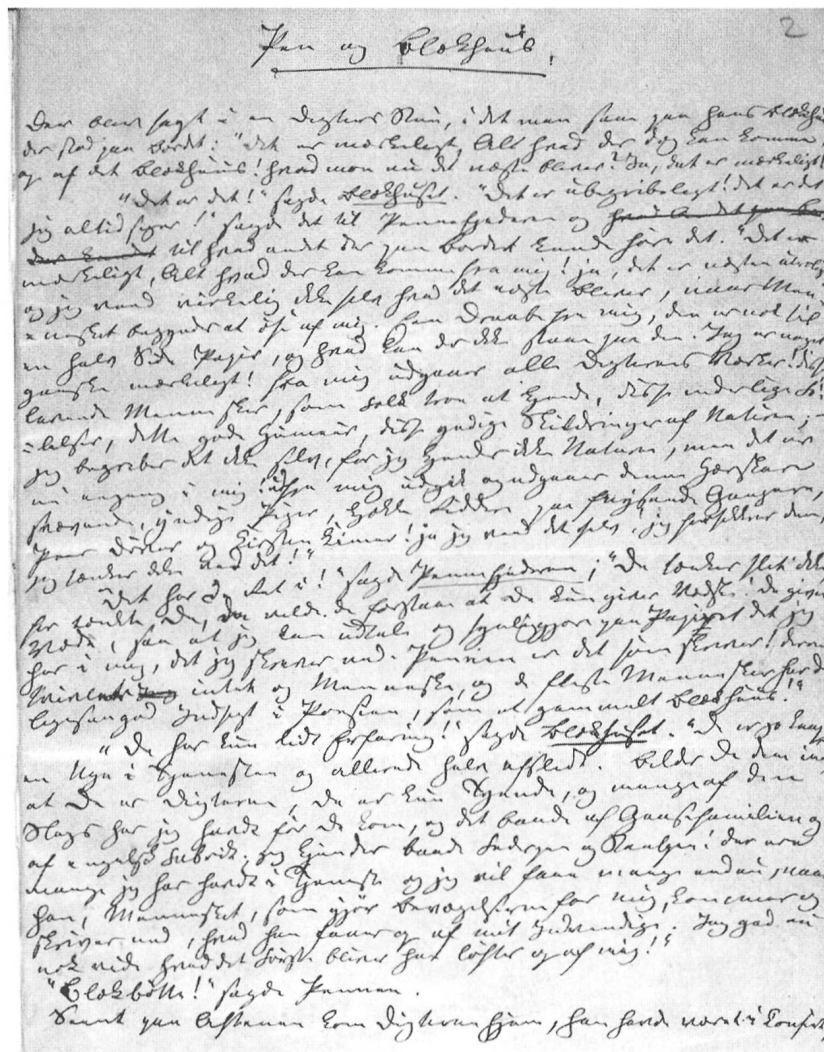 2
Pen og Blækhuus.
Der blev sagt i en Digters Stue, i det man saae paa hans Blækhuus
der stod paa Bordet: "det er mærkeligt, Alt hvad der dog kan komme
op af det Blækhuus! hvad mon nu det næste bliver? Ja, det er mærkeligt!
"Det er det!" sagde Blækhuset. "Det er ubegribeligt! det er det
jeg altid siger!" sagde det til Pennefjederen og
til hvad andet der paa Bordet kunde høre det. "Det er
mærkeligt, Alt hvad der kan komme fra mig! ja, det er næsten utrolig
og jeg veed virkelig ikke selv hvad det næste bliver, naar Men-
nesket begynder at øse af mig. Een Draabe fra mig, den er nok til
en halv Side Papir, og hvad kan der ikke staae paa den. Jeg er noget
ganske mærkeligt! fra mig udgaaer alle Digterens Værker! disse
levende Mennesker, som Folk troe at kjende, disse inderlige Fø-
lelser, dette gode Humeur, disse yndige Skildringer af Naturen;
jeg begriber det ikke selv, for jeg kjender ikke Naturen, men det er
nu engang i mig! Fra mig udgik og udgaaer denne Hærskare
svævende, yndige Piger, kjække Riddere paa fnysende Gangere,
Peer Døver og Kirsten Kimer! ja jeg veed det selv, jeg forsikkrer Dem,
jeg tænker ikke ved det!"
"Det har De Ret i!" sagde Pennefjederen; "De tænker slet ikke
for tænkte De, da vilde De forstaae at De kun giver Vædske! De giver
Væde, saa at jeg kan udtale og synliggjøre paa Papiret det jeg
har i mig, det jeg skriver ned. Pennen er det som skriver! derom
tvivler intet og Menneske, og de fleste Mennesker har da
ligesaa god Indsigt i Poesien, som et gammelt Blækhuus!"
"De har kun lidt Erfaring!" sagde Blækhuset. "De er jo knap
en Uge i Tjenesten og allerede halv afslidt. Bilder De Dem ind
at De er Digteren, De er kun Tyende, og mange af den
Slags har jeg havdt før De kom, og det baade af Gaasefamilien og
af engelsk Fabrik; jeg kjender baade Fjerpen og Staalpen! der ere
mange jeg har havdt i Tjeneste og jeg vil faae mange endnu, naar
han, Mennesket, som gjør Bevægelsen for mig, kommer og
skriver ned, hvad han faaer op af mit Indvendige. Jeg gad nu
nok vide hvad det Første bliver han løfter op af mig!"
"Blækbøtte!" sagde Pennen.
Seent paa Aftenen kom Digteren hjem, han havde været i Concert,